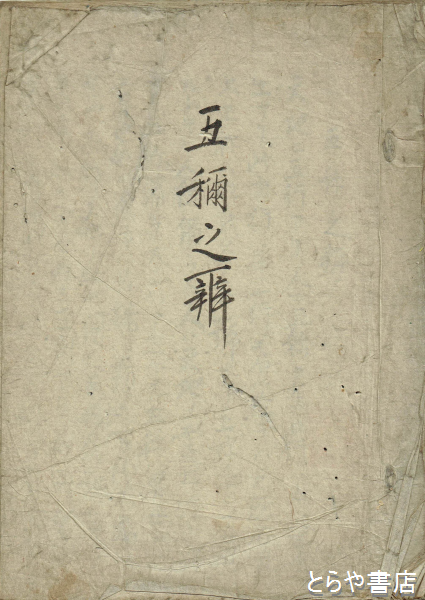 五穪之辨
とらや書店